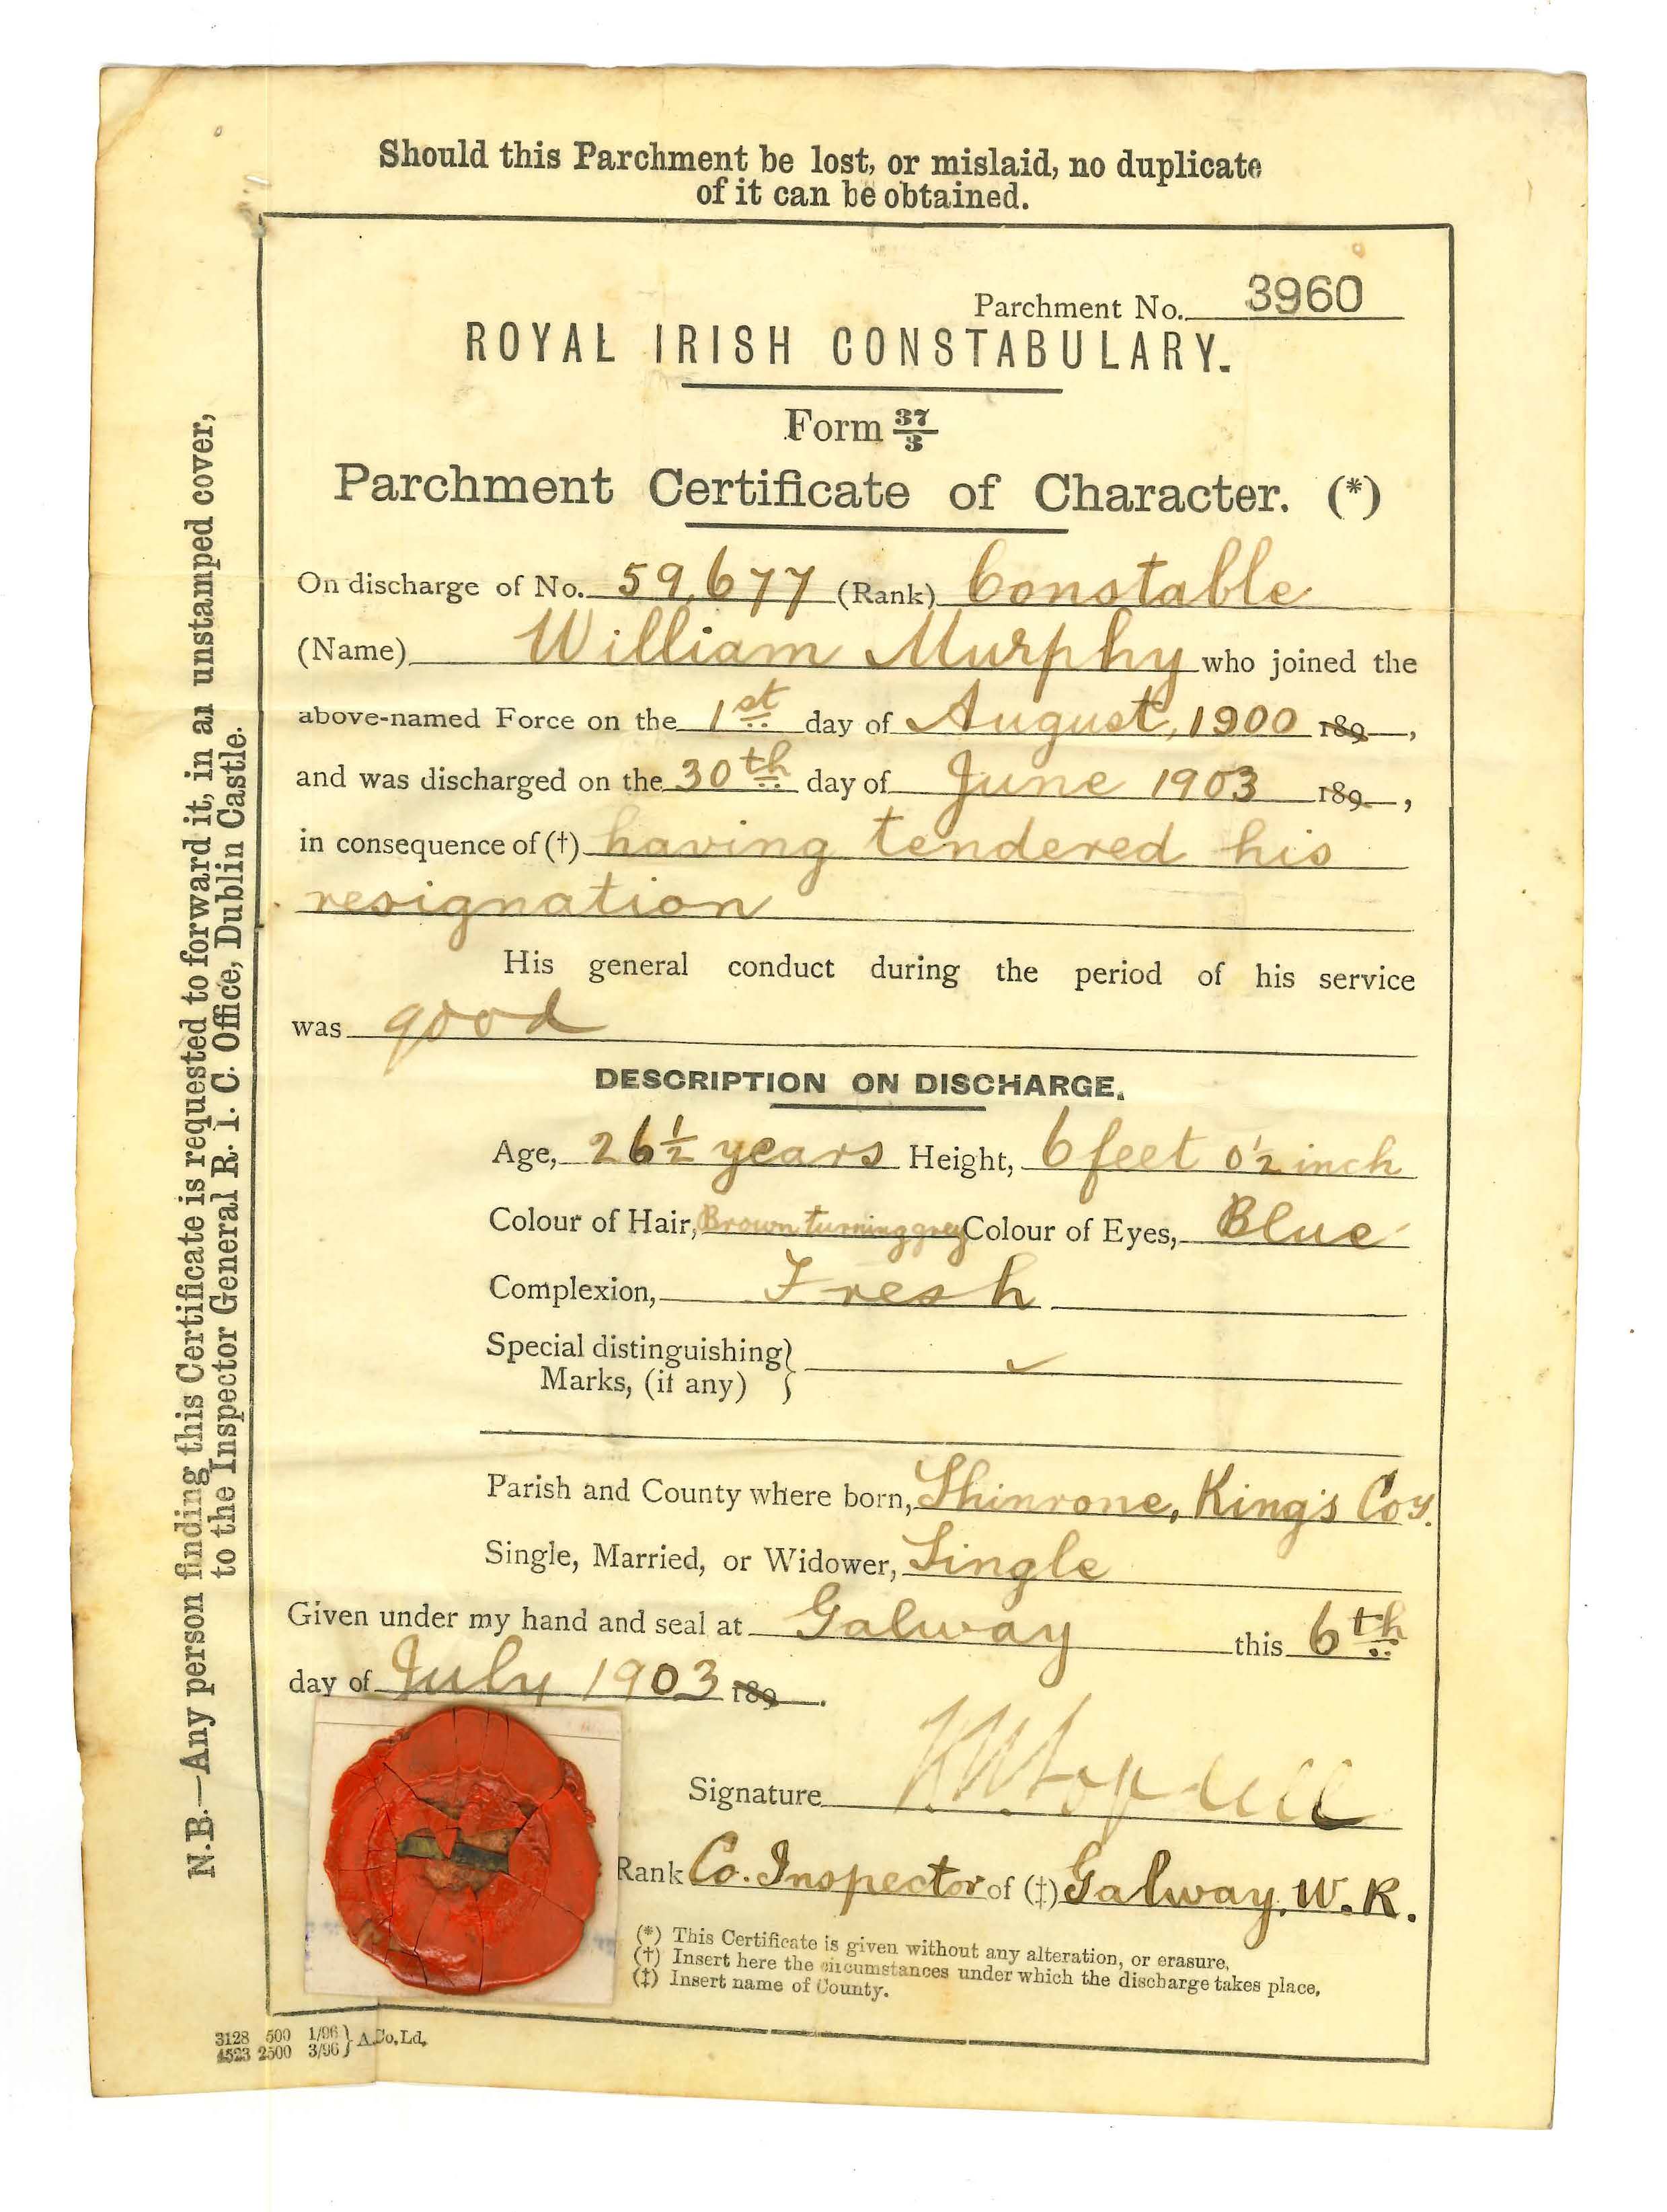 Should this Parchment be lost, or mislaid, no duplicate
of it can be obtained.
Parchment No. 3960
ROYAL IRISH CONSTABULARY.
Form 37/3
Parchment Certificate of Character. (*)
On discharge of No. 59,677 (Rank) Constable
(Name) William Murphy who joined the
above-named Force on the 1st day of August, 1900 189 ,
and was discharged on the 30th day of June 1903 189 ,
in consequence of (†) having tendered his
resignation
His general conduct during the period of his service
was good
DESCRIPTION ON DISCHARGE.
Age, 26½ years Height, 6 feet 0½ inch
Colour of Hair, Brown turning grey Colour of Eyes, Blue
Complexion, Fresh
Special distinguishing
Marks, (if any)
Parish and County where born, Shinrone, King's Coy.
Single, Married, or Widower, Single
Given under my hand and seal at Galway this 6th
day of July 1903 189 .
Signature
Rank Co. Inspector of (‡) Galway, W.R.
(*) This Certificate is given without any alteration, or erasure,
(†) Insert here the circumstances under which the discharge takes place,
(‡) Insert name of County.
3128 500 1/96 } A. Co, Ld,
4523 2500 3/96
N.B.—Any person finding this Certificate is requested to forward it, in an unstamped cover,
to the Inspector General R. I. C. Office, Dublin Castle.